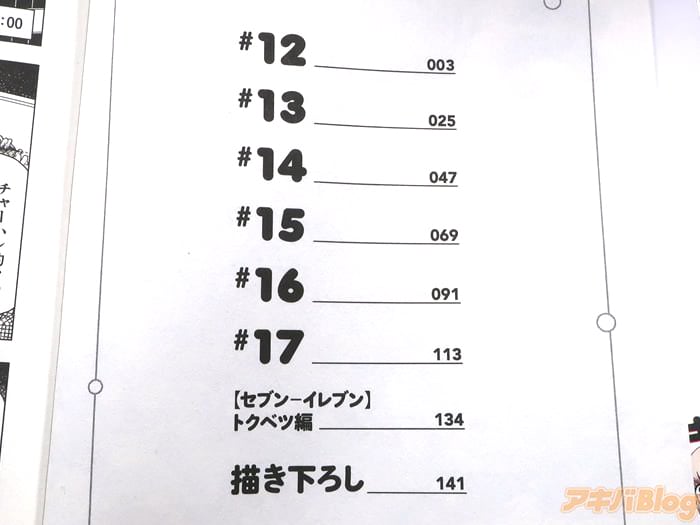 :00
#12 003
#13 025
#14 047
#15 069
#16 091
#17 113
【セブン-イレブン】
トクベツ編 134
描き下ろし 141
アキバBlog